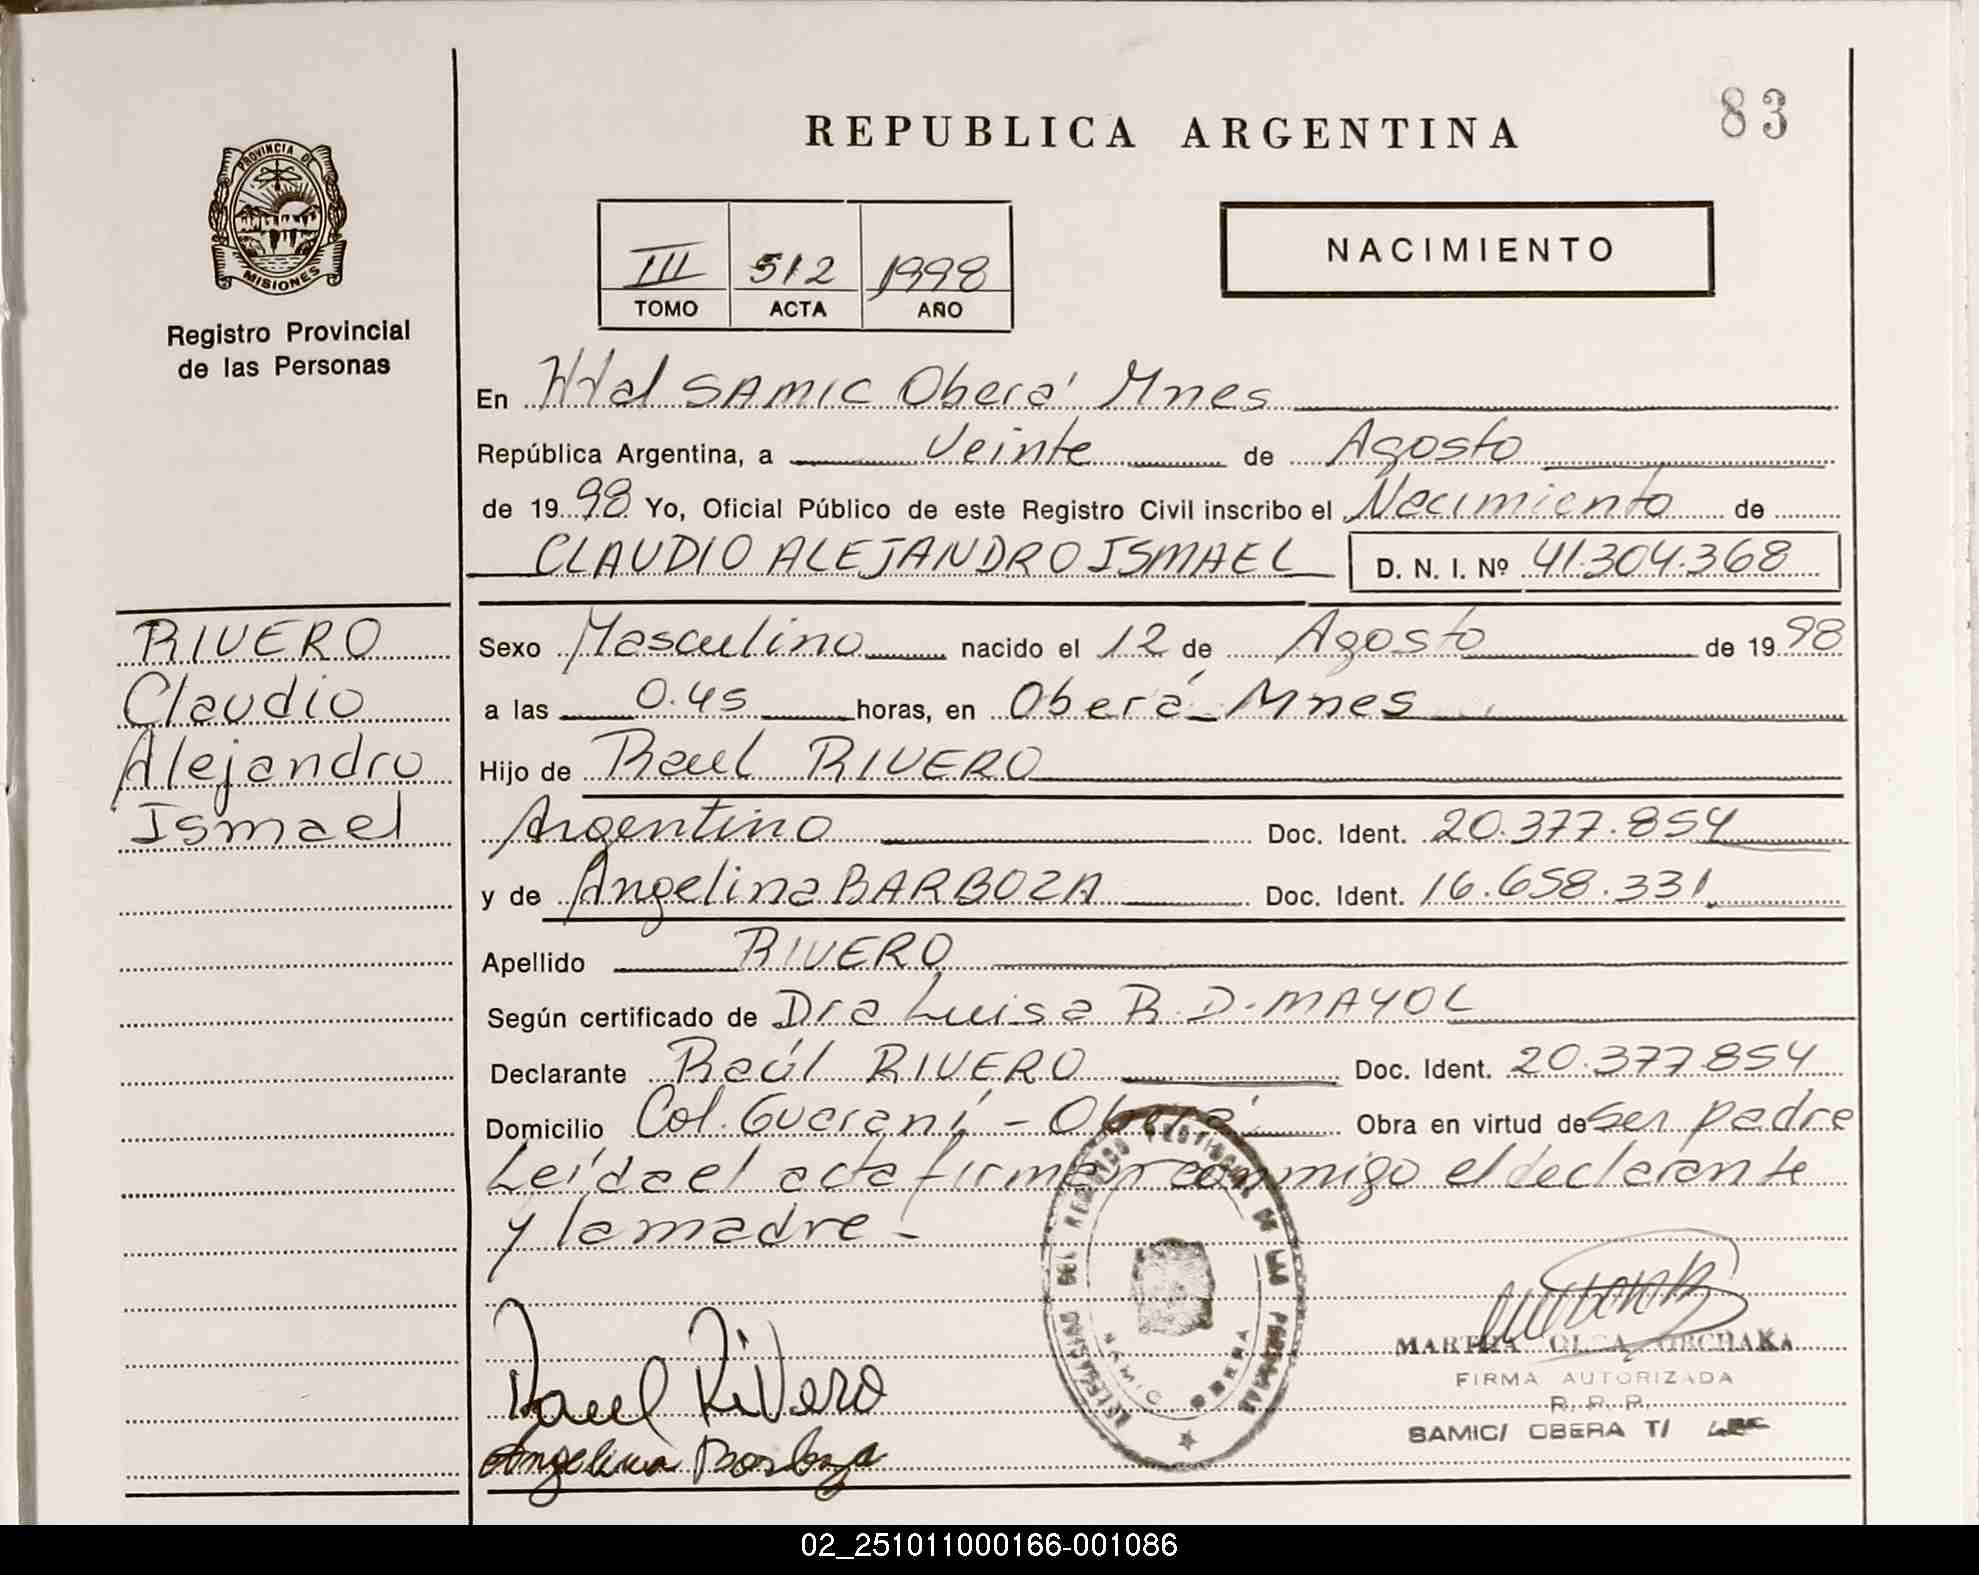 83
REPUBLICA ARGENTINA
PROVINCIA DE
MISIONES
Registro Provincial
de las Personas
III 512 1998
TOMO ACTA AÑO
NACIMIENTO
En Htal SAMIC Oberá Mnes
República Argentina, a Veinte de Agosto
de 1998 Yo, Oficial Público de este Registro Civil inscribo el Nacimiento de
CLAUDIO ALEJANDRO ISMAEL D. N. I. Nº 41.304.368
RIVERO
Claudio
Alejandro
Ismael
Sexo Masculino nacido el 12 de Agosto de 1998
a las 0.45 horas, en Oberá Mnes
Hijo de Raul RIVERO
Argentino Doc. Ident. 20.377.854
y de Angelina BARBOZA Doc. Ident. 16.658.331
Apellido RIVERO
Según certificado de Dra Luisa R. D. MAYOL
Declarante Raúl RIVERO Doc. Ident. 20.377854
Domicilio Col. Guaraní - Oberá Obra en virtud de Ser padre
Leída el acta firman conmigo el declarante
y la madre -
DELEGACIÓN DEL REGISTRO PROVINCIAL DE LAS PERSONAS
SAMIC OBERA
Raul Rivero
Angelina Barboza
MARTHA OLGA
FIRMA AUTORIZADA
R. P. P.
SAMIC/ OBERA T/
02_251011000166-001086